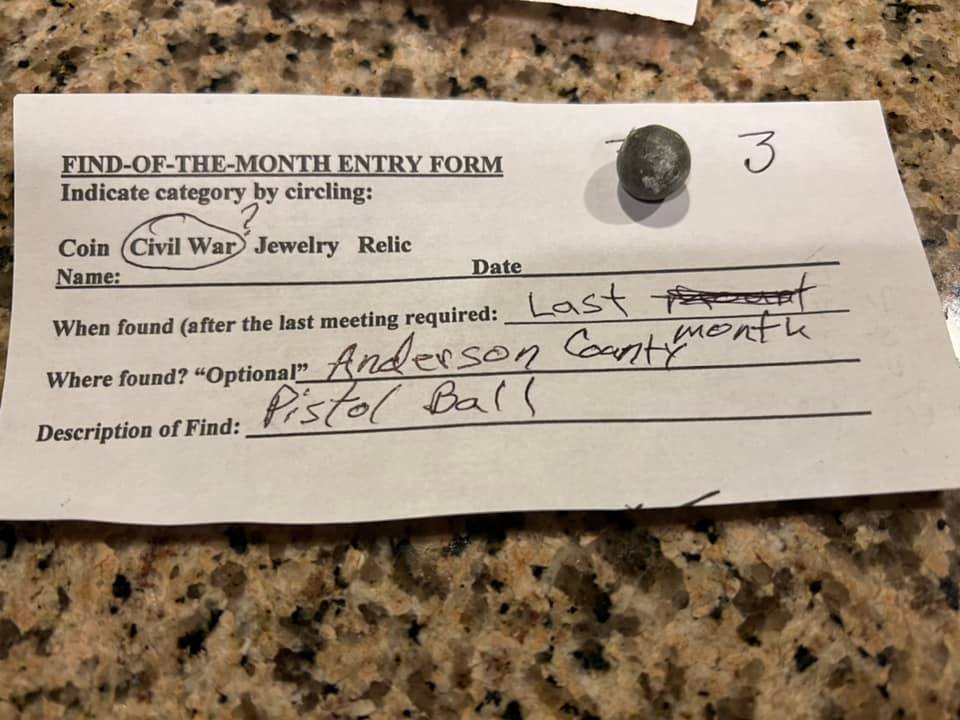 3
FIND-OF-THE-MONTH ENTRY FORM
Indicate category by circling:
Coin Civil War? Jewelry Relic
Name: Date
When found (after the last meeting required: Last
month
Where found? “Optional” Anderson County
Description of Find: Pistol Ball